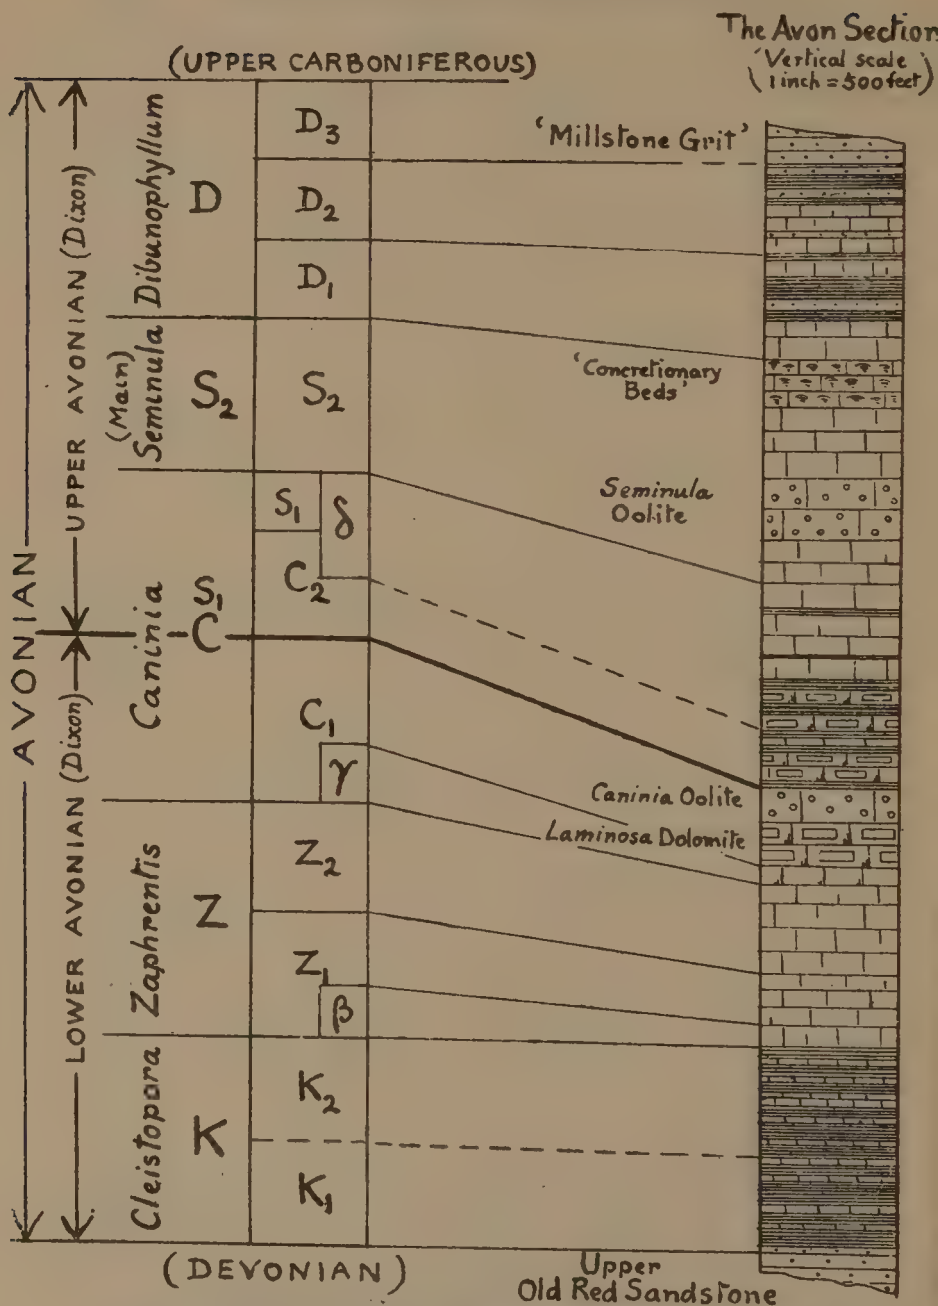 The Avon Section
(Vertical scale
1 inch = 500 feet)
(UPPER CARBONIFEROUS)
AVONIAN
UPPER AVONIAN (Dixon)
LOWER AVONIAN (Dixon)
Dibunophyllum
D
D3
D2
D1
(Main)
Seminula
S2
S2
Caninia
S1
C
S1
δ
C2
C1
γ
Zaphrentis
Z
Z2
Z1
β
Cleistopora
K
K2
K1
(DEVONIAN)
'Millstone Grit'
'Concretionary
Beds'
Seminula
Oolite
Caninia Oolite
Laminosa Dolomite
Upper
Old Red Sandstone